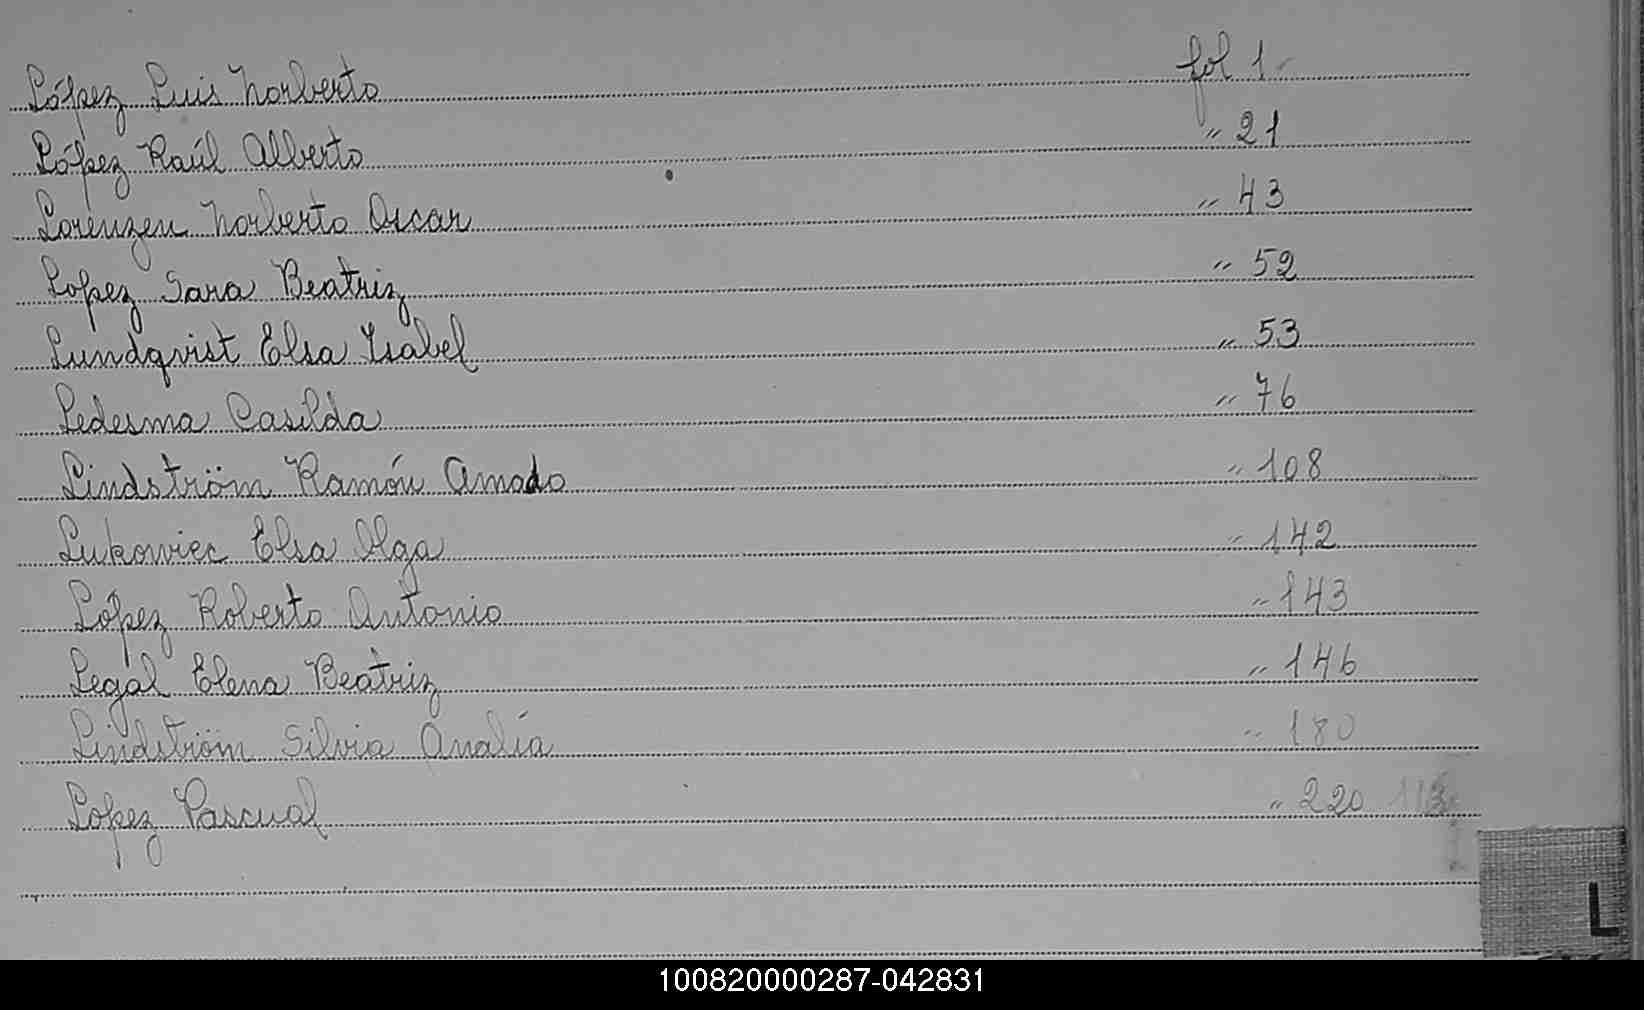 López Luis Norberto fol 1
López Raúl Alberto " 21
Lorenzen Norberto Oscar " 43
Lopez Sara Beatriz " 52
Lundqvist Elsa Isabel " 53
Ledesma Casilda " 76
Lindström Ramón Amado " 108
Lukowiec Elsa Olga " 142
López Roberto Antonio " 143
Legal Elena Beatriz " 146
Lindström Silvia Analía " 180
Lopez Pascual " 220
L
100820000287-042831